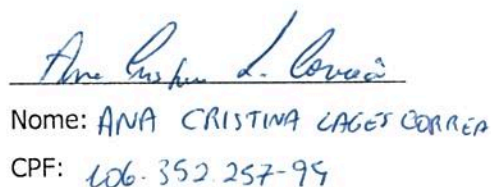 Ana Cristina L. Corrêa
Nome: ANA CRISTINA LAGES CORREA
CPF: 106.352.257-95